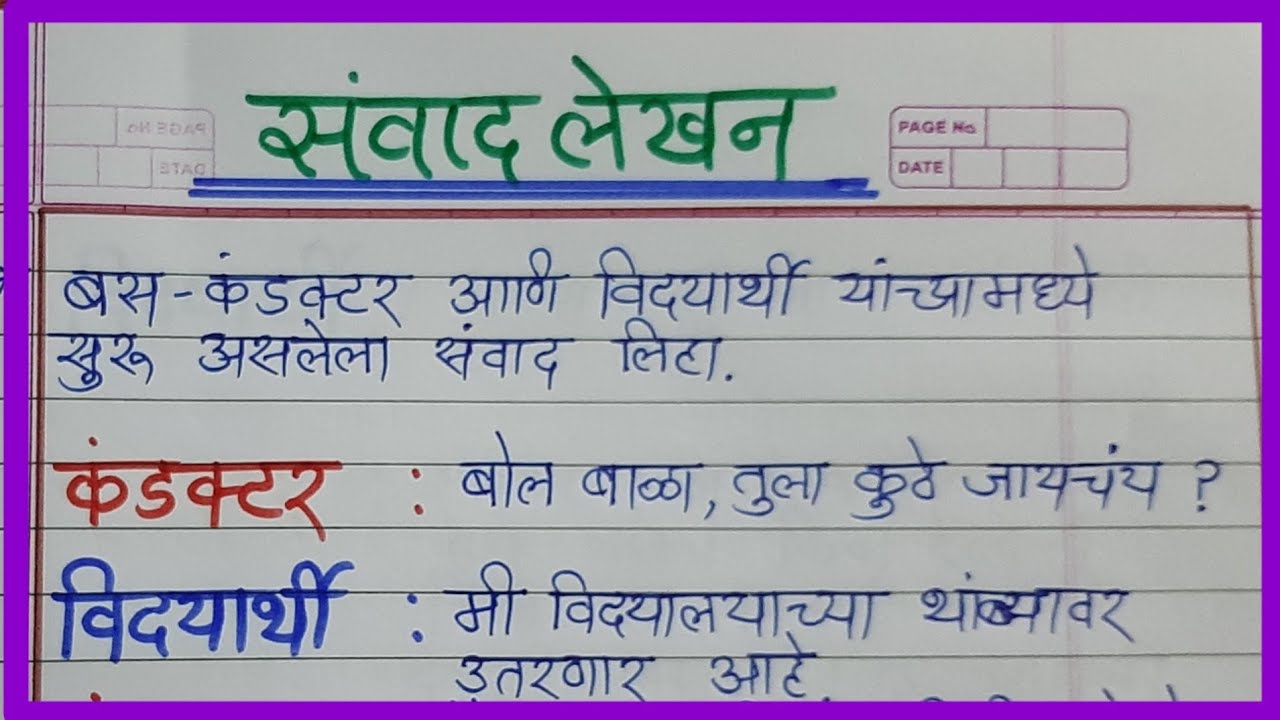 संवाद लेखन
PAGE No
DATE
बस-कंडक्टर आणि विदयार्थी यांच्यामध्ये
सुरू असलेला संवाद लिहा.
कंडक्टर : बोल बाळा, तुला कुठे जायचंय ?
विदयार्थी : मी विदयालयाच्या थांब्यावर
उतरणार आहे.